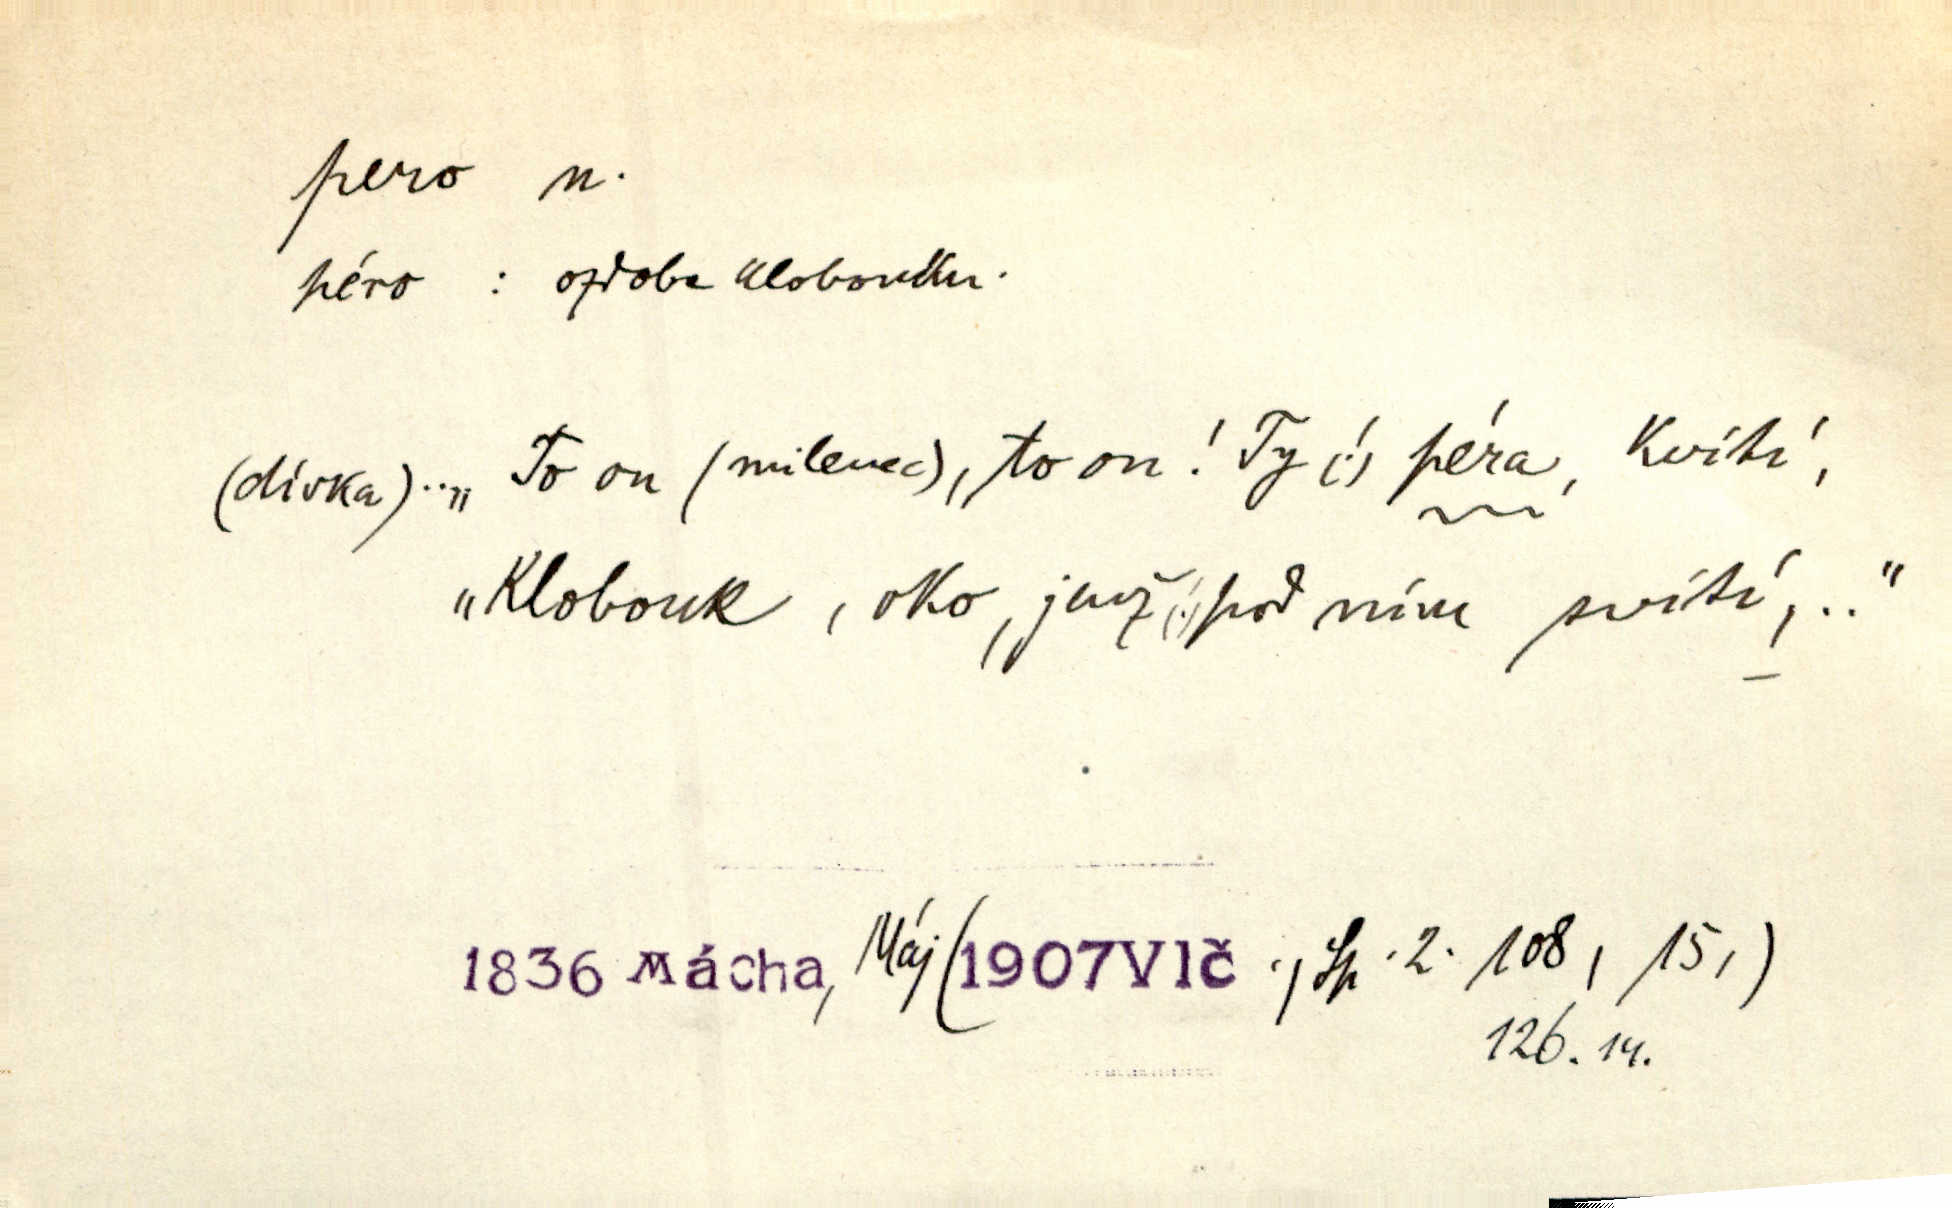 pero n.
péro : ozdoba klobouku.
(dívka)..„To on (milenec), to on! Ty (!) péra, kvítí,
„Klobouk, oko, jenž (!) pod ním svítí,.."
1836 Mácha, Máj (1907Vlč., Sp. 2. 108, 15,)
126. 14.